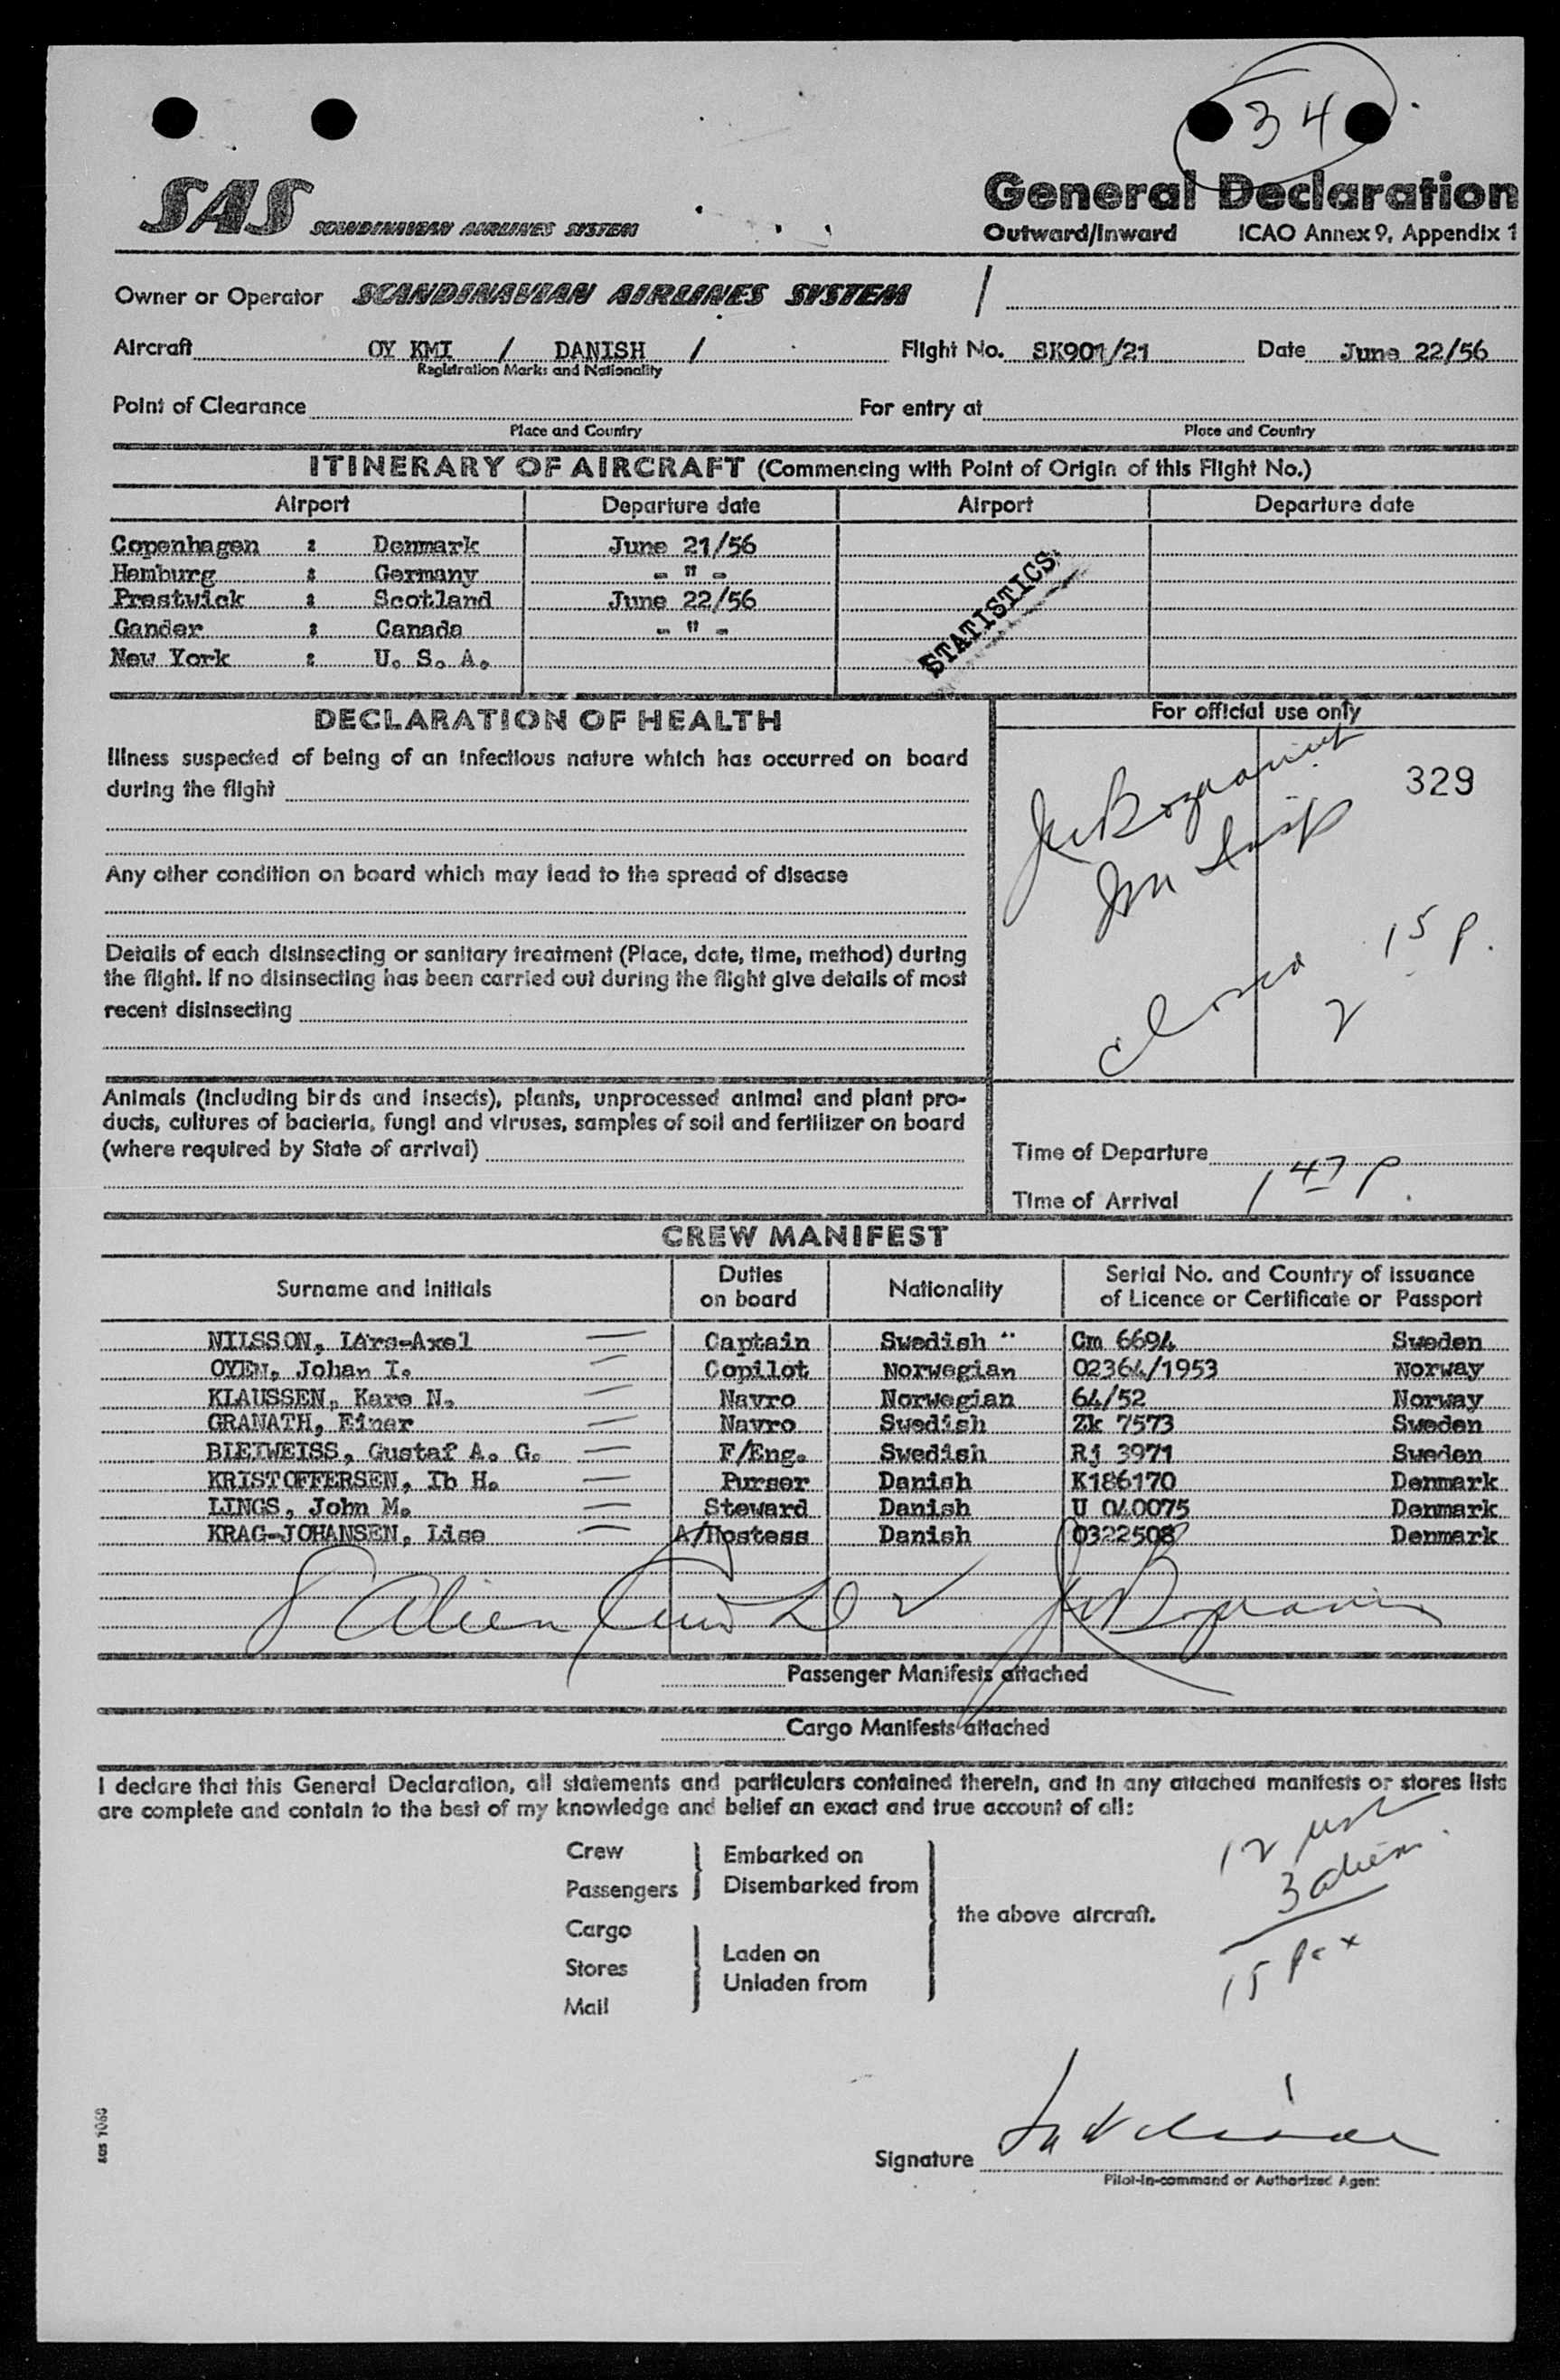 34
SAS SCANDINAVIAN AIRLINES SYSTEM
General Declaration
Outward/Inward ICAO Annex 9, Appendix 1
Owner or Operator SCANDINAVIAN AIRLINES SYSTEM /
Aircraft OY KMI / DANISH / Flight No. SK901/21 Date June 22/56
Registration Marks and Nationality
Point of Clearance For entry at
Place and Country Place and Country
ITINERARY OF AIRCRAFT (Commencing with Point of Origin of this Flight No.)
Airport Departure date Airport Departure date
Copenhagen : Denmark June 21/56
Hamburg : Germany - " -
Prestwick : Scotland June 22/56
Gander : Canada - " -
New York : U. S. A.
STATISTICS
DECLARATION OF HEALTH
Illness suspected of being of an infectious nature which has occurred on board
during the flight
Any other condition on board which may lead to the spread of disease
Details of each disinsecting or sanitary treatment (Place, date, time, method) during
the flight. If no disinsecting has been carried out during the flight give details of most
recent disinsecting
Animals (including birds and insects), plants, unprocessed animal and plant pro-
ducts, cultures of bacteria, fungi and viruses, samples of soil and fertilizer on board
(where required by State of arrival)
For official use only
329
Imm Insp
closed 2 15 p.
Time of Departure
Time of Arrival 1 47 P.
CREW MANIFEST
Surname and Initials Duties on board Nationality Serial No. and Country of issuance of Licence or Certificate or Passport
NILSSON, Lars-Axel Captain Swedish Cm 6694 Sweden
OYEN, Johan I. Copilot Norwegian 02364/1953 Norway
KLAUSSEN, Kare N. Navro Norwegian 64/52 Norway
GRANATH, Einar Navro Swedish Zk 7573 Sweden
BLEIWEISS, Gustaf A. G. F/Eng. Swedish Rj 3971 Sweden
KRISTOFFERSEN, Ib H. Purser Danish K186170 Denmark
LINGS, John M. Steward Danish U 040075 Denmark
KRAG-JOHANSEN, Lise A/Hostess Danish 0322508 Denmark
8 Alien Crew
Passenger Manifests attached
Cargo Manifests attached
I declare that this General Declaration, all statements and particulars contained therein, and in any attached manifests or stores lists
are complete and contain to the best of my knowledge and belief an exact and true account of all:
Crew
Passengers
Cargo
Stores
Mail
Embarked on
Disembarked from
Laden on
Unladen from
the above aircraft.
12 usc
3 alien
15 pax
Signature
Pilot-in-command or Authorized Agent
sas 1060